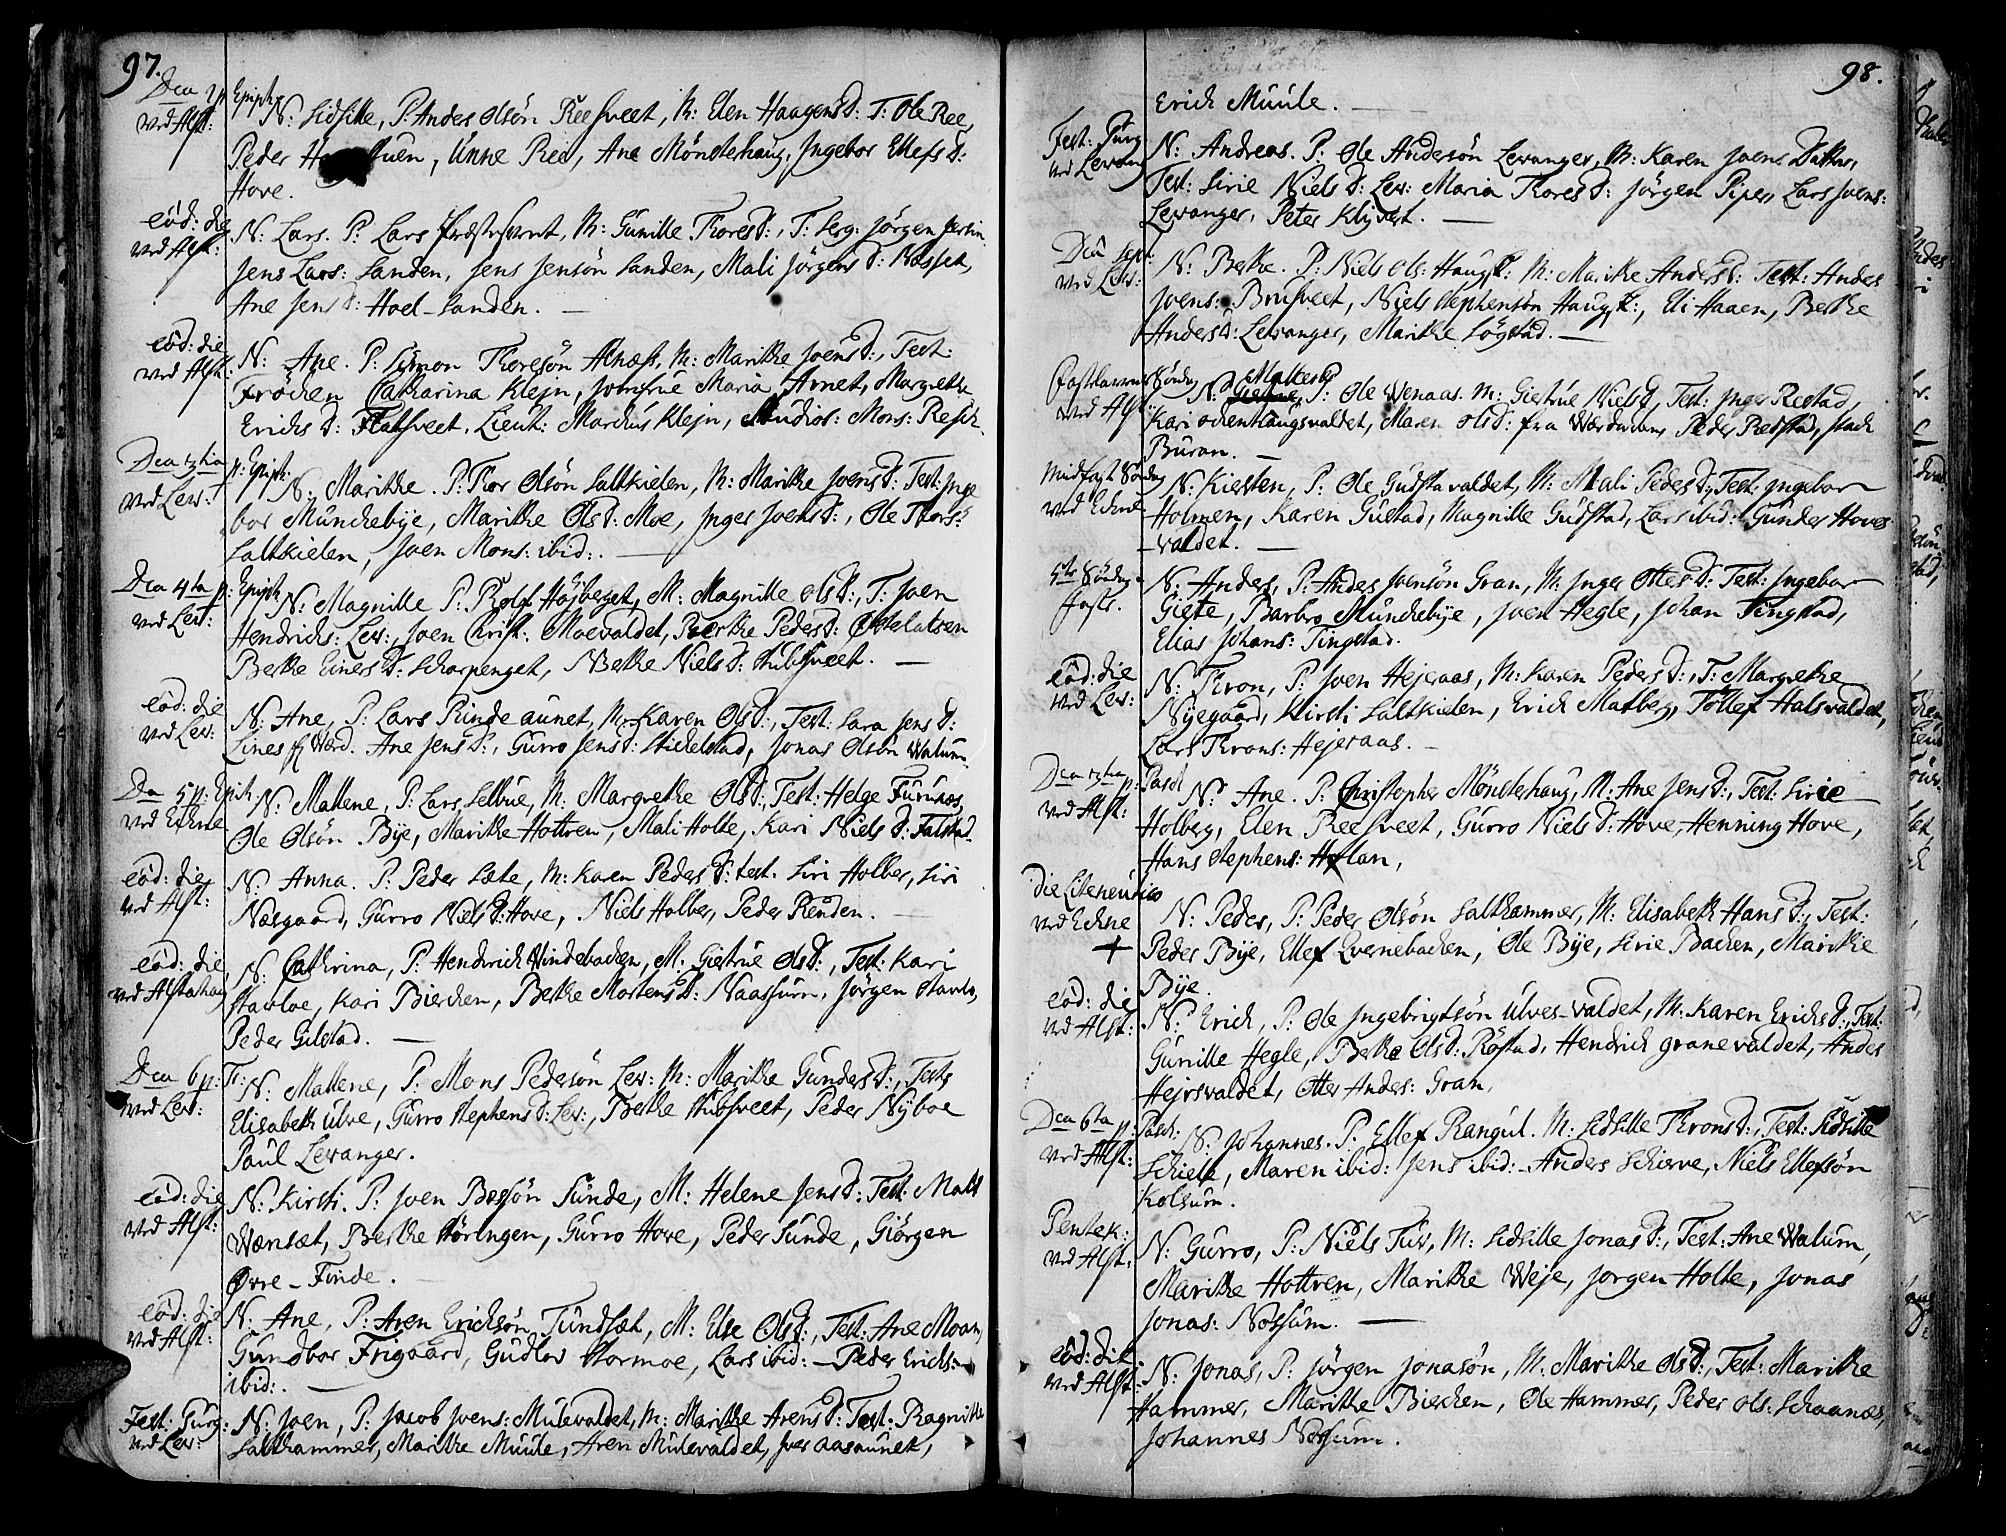 97.
Dca 2 p. Epiph:
ved Alst:
N: Sidsille, P: Anders Olsön Reesveet, M: Elen HaagensD: T: Ole Ree,
Peder uen, Unne Ree, Ane Mönsterhaug, Ingebor EllefsD:
Hove.
eod: die
ved Alst:
N: Lars. P: Lars, M: Gunille ThoresD:, T: Serg: Jörgen
Jens Lars: Landen, Jens Jensön Landen, Mali JörgensD: Næsset,
Ane JensD: Hoel-Landen.
eod: die
ved Alst:
N: Ane. P: Simon Thoresön Alnæss, M: Marithe JoensD:, Test:
Fröcken Catharina Klejn, Jomfrue Maria Arnet, Margrethe
ErichsD: Flatsveet. Lieut: Marchus Klejn, Studios: Mons: Resch.
Dca 3tia p: Epiph:
ved Lev:
N: Marithe. P: Thor Olsön Saltkielen, M: Marithe JoensD: Test: Inge
bor Munchebye, Marithe OlsD: Moe, Inger JoensD:, Ole Thors:
Saltkielen, Joen Mons: ibid:.
Dca 4ta p: Epiph
ved Lev:
N: Magnille P: Rolf Hojberget, M: Magnille OlsD:, T: Joen
Hendrichs: Lev:, Joen Christ: Moevaldet, Berthe PedersD: Østelatsen
Berthe EinersD: Scharpenget, Berthe NielsD: Stubsveet.
eod: die
ved Lev:
N: Ane, P: Lars Rinde aunet, M: Karen OlsD:, Test: Sara JensD:
Lines Værd. Ane JensD:, Gurro JensD: Stichelstad, Jonas Olsön Walum
Da 5 p: Epiph
ved Echne
N: Mallene, P: Lars Selbue, M: Margrethe OlsD:, Test: Helge Furunæs,
Ole Olsön Bye, Marithe Hottren, Mali Holte, Kari NielsD: Falstad.
eod: die
ved Alst:
N: Anna. P: Peder Læte, M: Karen PedersD: test. Siri Holber, Siri
Næsgaard, Gurro NielsD: Hove, Niels Holber, Peder Renden.
eod: die
ved Alstahaug
N: Cathrina, P: Hendrich Windebachen, M: Giertrue OlsD:, Test: Kari
Stavloe, Kari Bierchen, Berthe MortensD: Naassum, Jörgen Stavlo,
Peder Gilstad.
Dca 6 p: T:
ved Lev:
N: Mallene, P: Mons Pedersön Lev: M: Marithe GundersD:, Test:
Elisabeth Ulve, Gurro StephensD: Lev:, Berthe Stubsveet, Peder Nyboe
Paul Levanger.
eod: die
ved Alst:
N: Kirsti. P: Joen Bersön Sunde, M: Helene JensD: Test: Mali
Wensæt, Berthe Hörlngen, Gurro Hove, Peder Sunde, Giörgen
Øvre-Finde.
eod: die
ved Alst:
N: Ane, P: Aren Erichsön Tundsæt, M: Else OlsD:, Test: Ane Moan,
Gundbor Frigaard, Gudlov Stormoe, Lars ibid: Peder Erichs:
ibid:.
Fest: Purg:
ved Lev:
N: Joen, P: Jacob Joens: Mulevaldet, M: Marithe ArensD: Test: Ragnille
Salthammer, Marithe Muule, Aren Mulevaldet, Iver Aasaunet,
98.
Erich Muule.
Fest: Purg
ved Levang
N: Andreas. P: Ole Andersön Levanger, M: Karen Joens Datter,
Test: Sirie NielsD: Lev: Maria ThoresD: Jörgen Piper, Lars Joens:
Levanger, Peter Klyvert.
Dca sept
ved Lev:
N: Berthe. P: Niels Ols: Haugst: M: Marithe AndersD: Test: Anders
Joens: Brusveet, Niels Stephensön Haugst:, Eli Haaen, Berthe
AndersD: Levanger, Marithe Lögstad.
Fastelavens Söndag
ved Alst:
N: Mallene, P: Ole Wenaas. M: Giertrue NielsD, Test: Inger Restad,
Kari ochenhaugsvaldet, Maren OlsD: fra Wærdalen, Peder Redstad,
Buran.
Midfast Söndag
ved Echne
N: Kiersten, P: Ole Gudstavaldet, M: Mali PedersD: Test: Ingebor
Holmen, Karen Gustad, Magnille Gudstad, Lars ibid: Gunder Hoves
-valdet.
5te Söndag
Faste.
N: Anders, P: Anders Joensön Gran, M: Inger OttersD: Test: Ingebor
Giete, Barbro Munchebye, Joen Hegle, Johan Tingstad,
Elias Johans: Tingstad.
eod: die
ved Lev:
N: Thron, P: Joen Hejeraas, M: Karen PedersD:, T: Margrethe
Nyegaard, Kirsti Saltkielen, Erich Matberg, Tollef Halsvaldet,
Lars Throns: Hejeraas.
Dca 3tia p: Pasch
ved Alst:
N: Ane. P: Christopher Mönsterhaug, M: Ane JensD:, Test: Sirie
Holberg, Elen Reesveet, Gurro NielsD: Hove, Henning Hove,
Hans Stephens: Hoflan,
Die Litaneutico
ved Echne
+
N: Peder, P: Peder Olsön Salthammer, M: Elisabeth HansD:, Test:
Peder Bye, Ellef Qvernebachen, Ole Bye, Sirie Bachen, Marithe
Bye.
eod: die
ved Alst:
N: Erich, P: Ole Ingebrigtsön Ulves-valdet, M: Karen ErichsD:, Test:
Gunille Hegle, Berthe OlsD: Röstad, Hendrich granevaldet, Anders
Hejrsvaldet, Otter Anders: Gran,
Dca 6ta p: Pasch:
ved Alst:
N: Johannes. P: Ellef Rangul. M: Sidsille ThronsD:, Test: Sidsille
Schiefe, Maren ibid: Jens ibid: Anders Schierve, Niels Ellefsön
Kolsum.
Pentek:
ved Alst:
N: Gurro, P: Niels Tuv, M: Sidsille JonasD:, Test: Ane Walum,
Marithe Hottren, Marithe Weje, Jorgen Holte, Jonas
Jonas: Nossum.
eod: die
ved Alst:
N: Jonas, P: Jörgen Jonasön, M: Marithe OlsD:, Test: Marithe
Hammer, Marithe Bierchen, Ole Hammer, Peder Ols: Schaanæs,
Johannes Nossum.